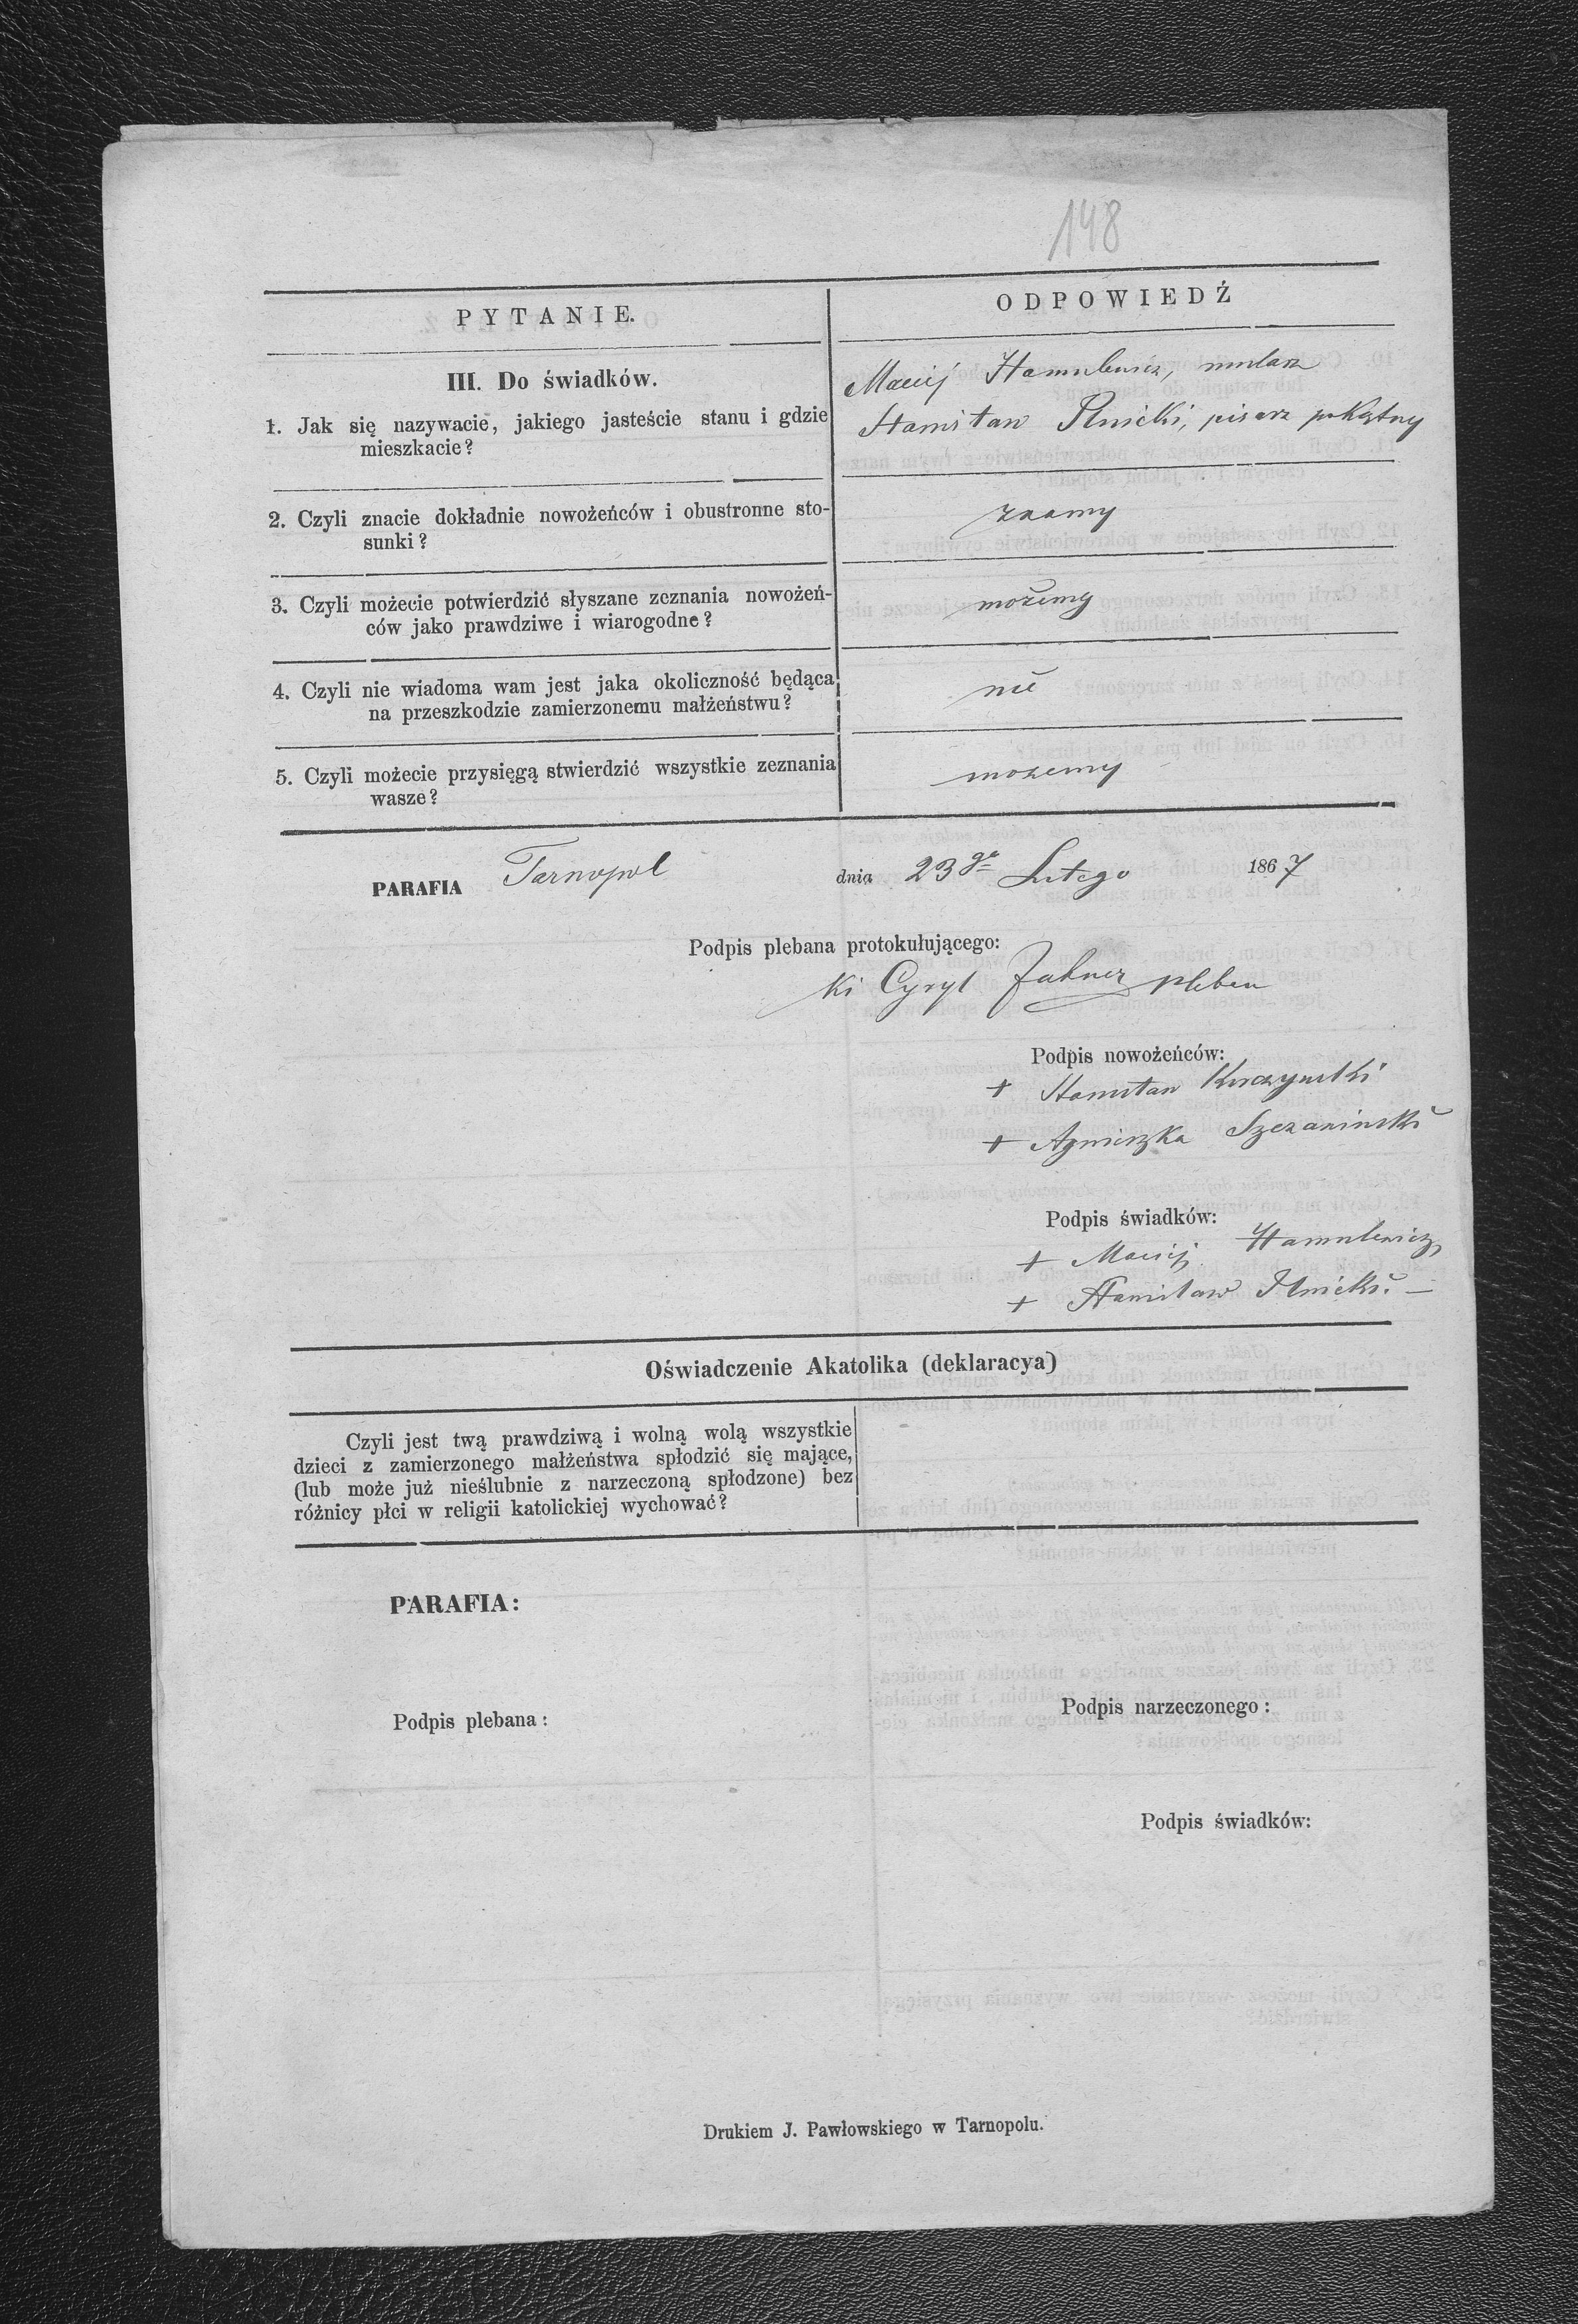 148
PYTANIE.
ODPOWIEDŹ
III. Do świadków.
1. Jak się nazywacie, jakiego jasteście stanu i gdzie
mieszkacie?
Maciej Hamulewicz, mularz
Stanisław Ilnicki, pisarz pokątny
2. Czyli znacie dokładnie nowożeńców i obustronne sto-
sunki?
znamy
3. Czyli możecie potwierdzić słyszane zeznania nowożeń-
ców jako prawdziwe i wiarogodne?
możemy
4. Czyli nie wiadoma wam jest jaka okoliczność będąca
na przeszkodzie zamierzonemu małżeństwu?
nie
5. Czyli możecie przysięgą stwierdzić wszystkie zeznania
wasze?
mozemy
PARAFIA Tarnopol dnia 23go Lutego 1867
Podpis plebana protokułującego:
Cyryl pleban
Podpis nowożeńców:
+ Stanisław
+ Agnieszka
Podpis świadków:
+ Maciej Hamulewicz
+ Stanisław Ilnicki. —
Oświadczenie Akatolika (deklaracya)
Czyli jest twą prawdziwą i wolną wolą wszystkie
dzieci z zamierzonego małżeństwa spłodzić się mające,
(lub może już nieślubnie z narzeczoną spłodzone) bez
różnicy płci w religii katolickiej wychować?
PARAFIA:
Podpis plebana:
Podpis narzeczonego:
Podpis świadków:
Drukiem J. Pawłowskiego w Tarnopolu.